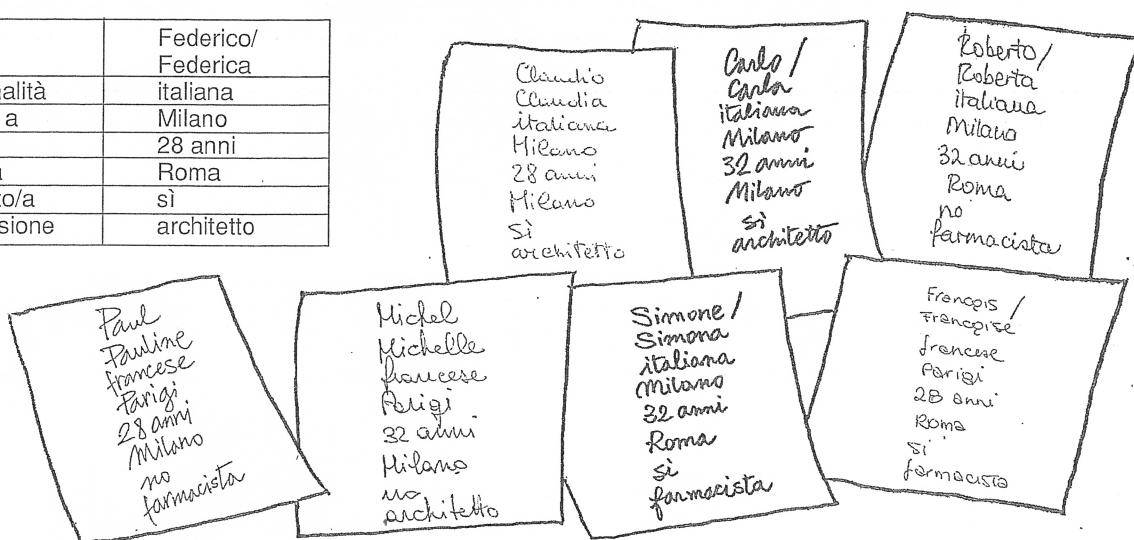 Federico/
Federica
alità italiana
a Milano
28 anni
a Roma
to/a sì
sione architetto
Claudio
Claudia
italiana
Milano
28 anni
Milano
Sì
architetto
Carlo /
Carla
italiana
Milano
32 anni
Milano
sì
architetto
Roberto/
Roberta
italiana
Milano
32 anni
Roma
no
farmacista
Paul
Pauline
francese
Parigi
28 anni
Milano
no
farmacista
Michel
Michelle
francese
Parigi
32 anni
Milano
no
architetto
Simone /
Simona
italiana
Milano
32 anni
Roma
sì
farmacista
François /
Françoise
francese
Parigi
28 anni
Roma
sì
farmacista